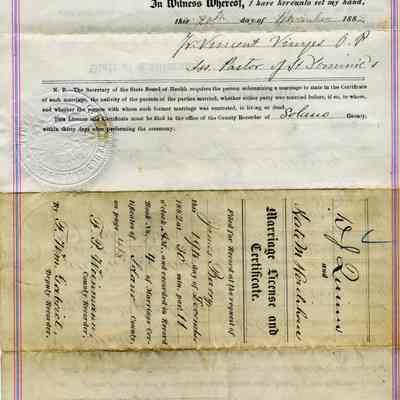 In Witness Whereof, I have hereunto set my hand,
this 20th day of November 1882
Fr Vincent Vinyes O. P
Ass. Pastor of St Dominic's
N. B.—The Secretary of the State Board of Health requires the person solemnizing a marriage to state in the Certificate
of such marriage, the nativity of the parents of the parties married, whether either party was married before; if so, to whom,
and whether the person with whom such former marriage was contracted, is living or dead.
This License and Certificate must be filed in the office of the County Recorder of Solano County,
within thirty days after performing the ceremony.
D J Quinn
and
Kate M Houlihan
Marriage License and
Certificate.
Filed for Record at the request of
James Barry
this 19th day of December
1882 at 30 min. past 11
o'clock A.M., and recorded in Record
Book No. 4 of Marriage Cer-
tificates of Solano County,
on page 415
F. P. Weinmann,
County Recorder.
By F. Wm
Deputy Recorder.